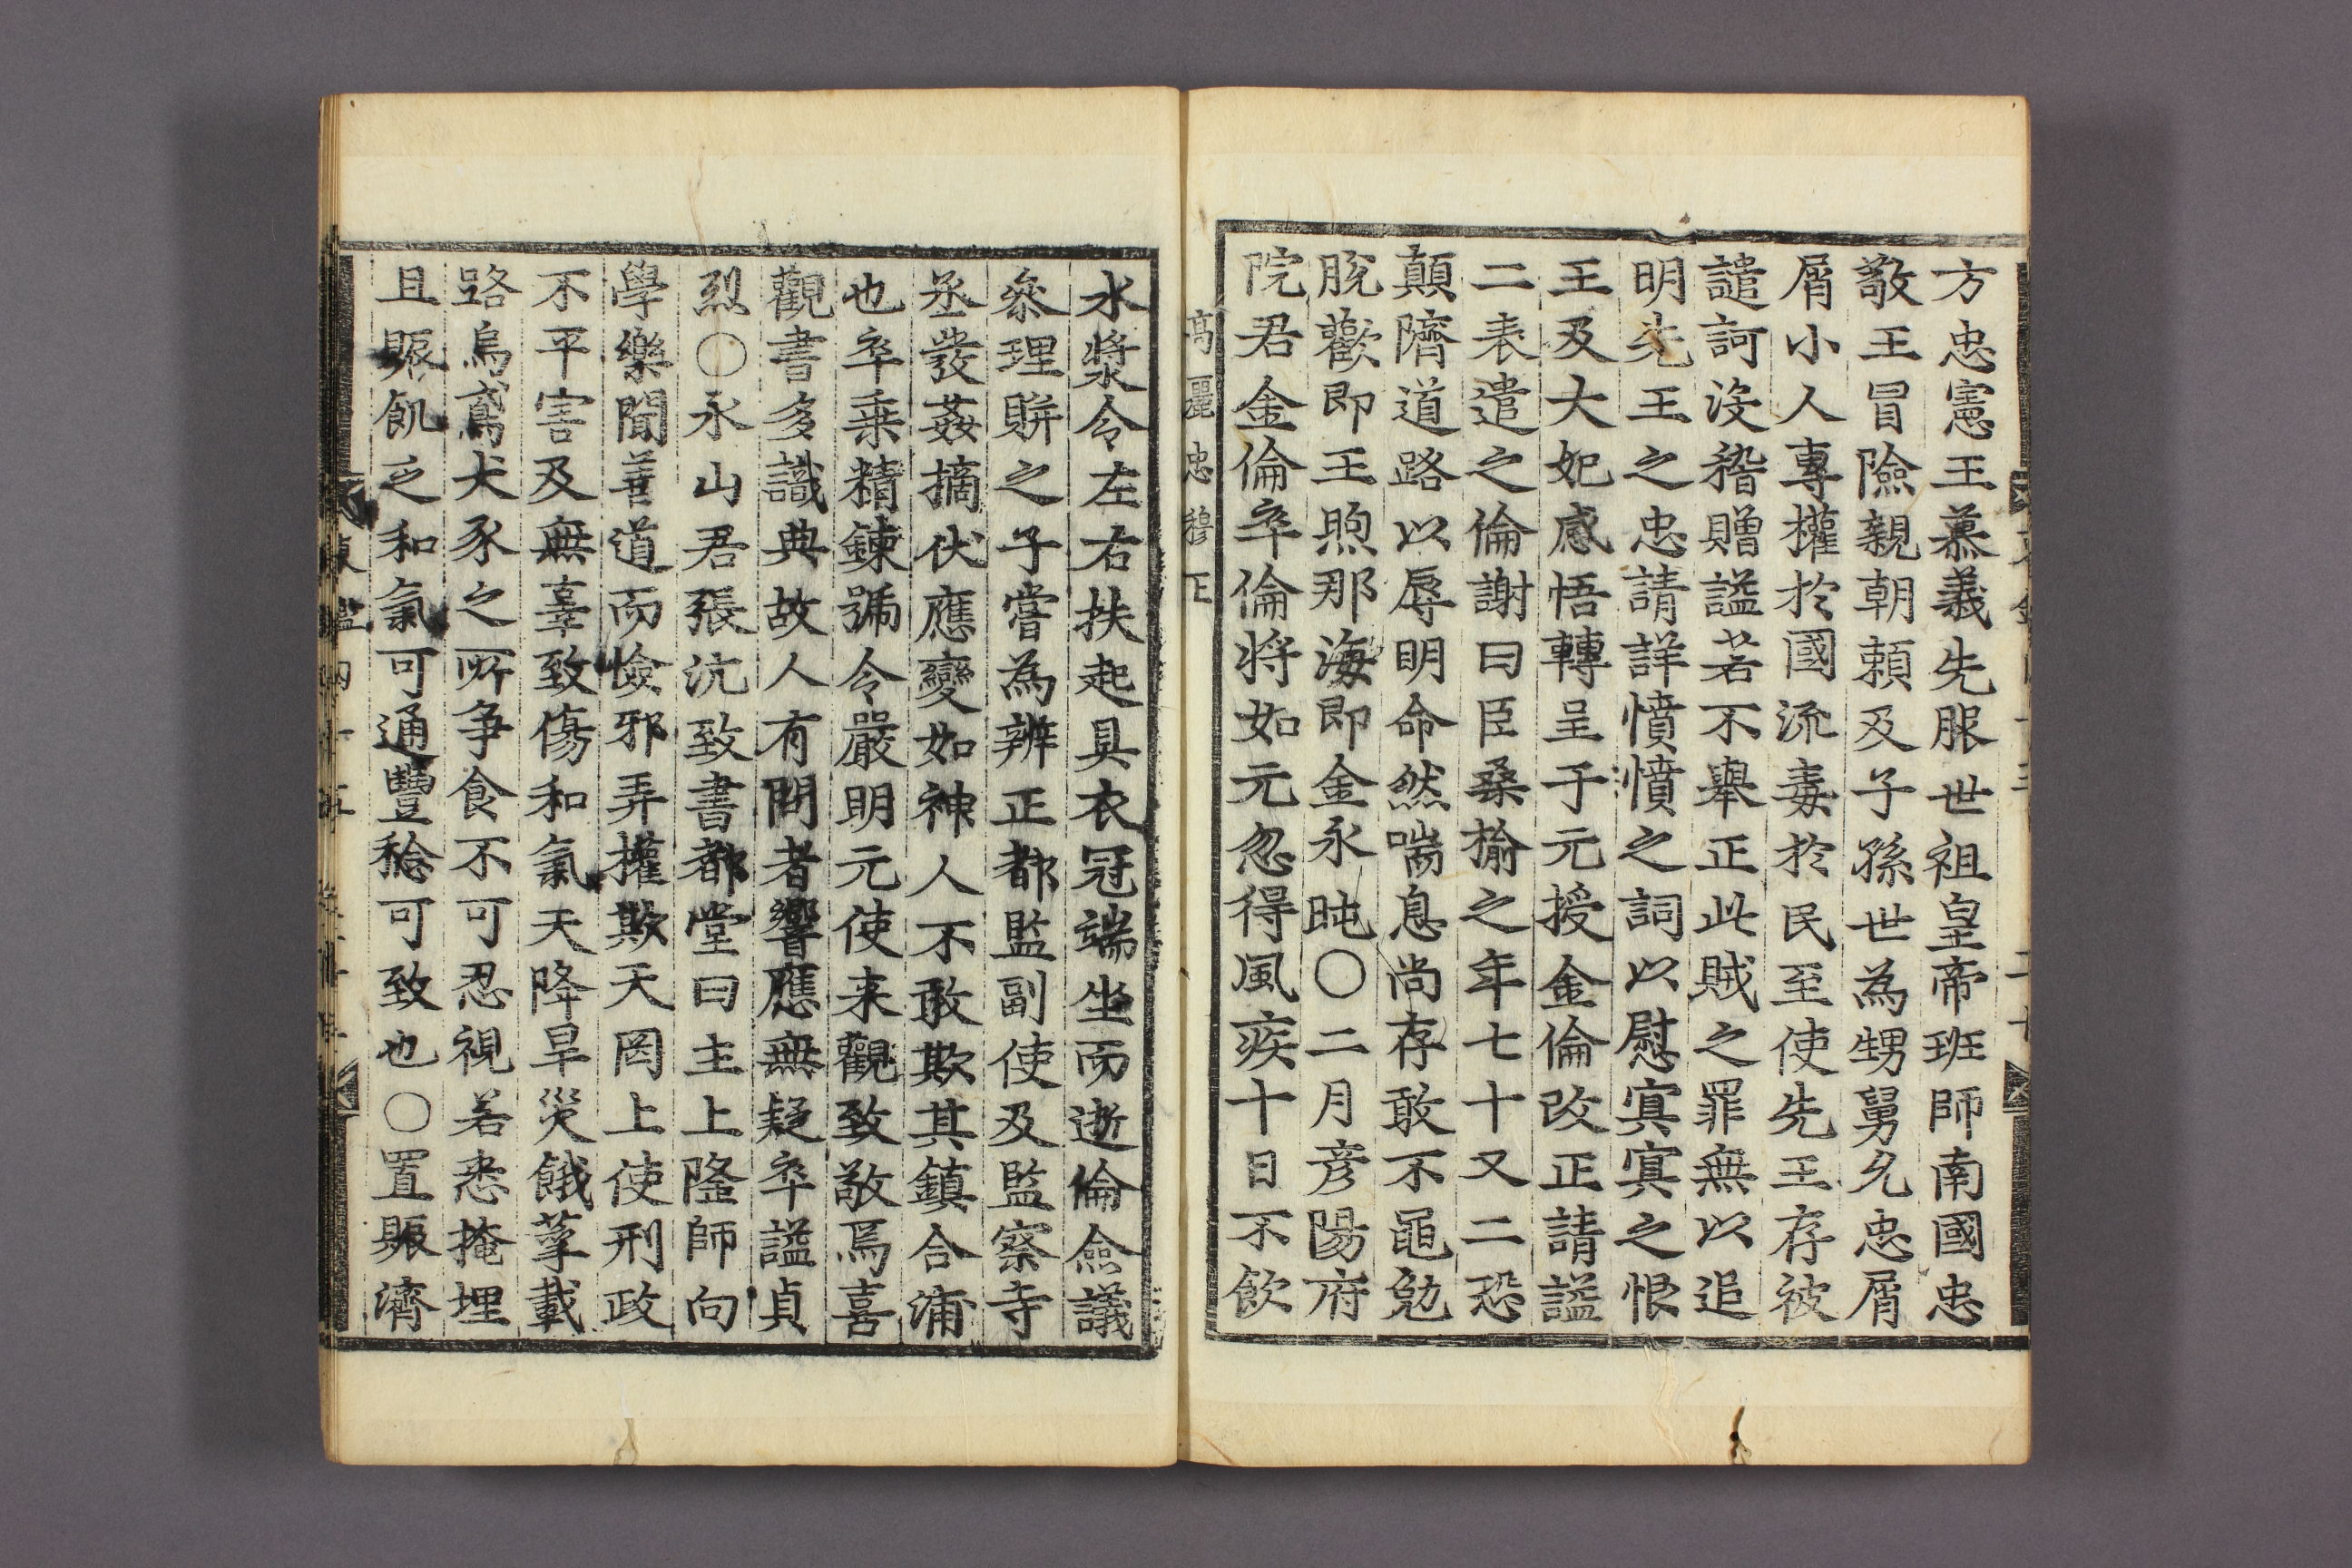 方忠憲王慕義先服世祖皇帝班師南國忠
敬王冒險親朝頼及子孫世為甥舅允忠屑
屑小人專權於國流毒於民至使先王存被
譴訶没稽贈謚若不舉正此賊之罪無以追
明先王之忠請詳憤憤之詞以慰寘寘之恨
王及大妃感悟轉呈于元授金倫改正請謚
二表遣之倫謝曰臣桑揄之年七十又二恐
顛隮道路以辱明命然喘息尚存敢不黽勉
脫歡即王煦那海即金永旽〇二月彦陽府
院君金倫卒倫將如元忽得風疾十日不飲
高麗忠穆王
水漿令左右扶起具衣冠端坐而逝倫僉議
叅理賆之子嘗為辨正都監副使及監察寺
丞發姦摘伏應變如神人不敢欺其鎮合浦
也卒乗精鍊號令嚴明元使来觀致敬焉喜
觀書多識典故人有問者響應無疑卒謚貞
烈〇永山君張沆致書都堂曰主上隆師向
學樂聞善道而憸邪弄權欺天罔上使刑政
不平害及無辜致傷和氣天降旱災餓莩載
路烏鳶犬豕之所争食不可忍視若悉掩埋
且賑飢乏和氣可通豐稔可致也〇置賑濟